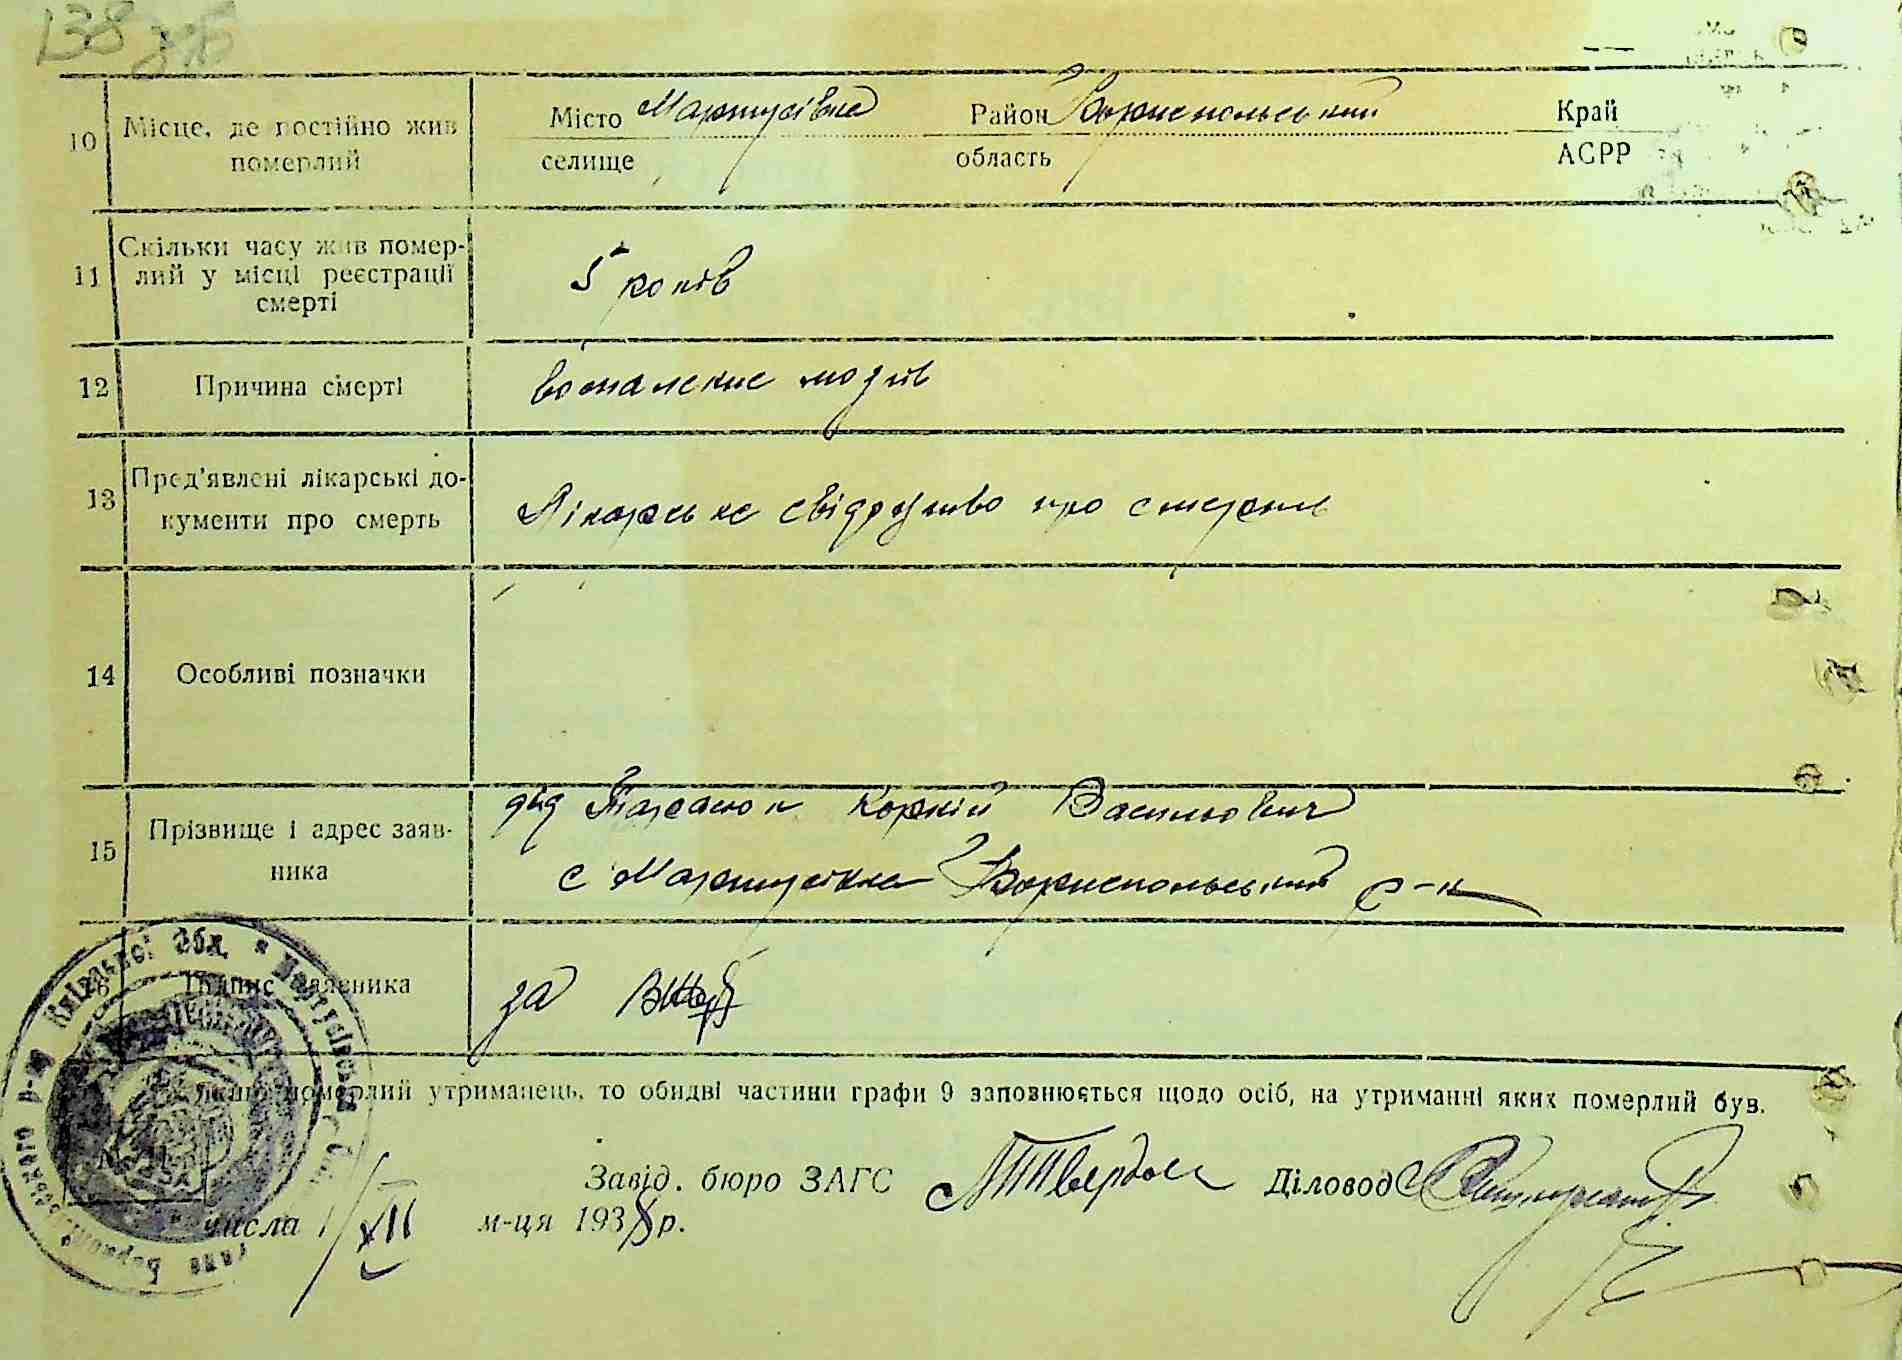 138 зв
10 Місце, де постійно жив померлий
Місто Мартусівка Район Бориспольський Край
селище область АСРР
11 Скільки часу жив помер-
лий у місці реєстрації
смерті
5 років
12 Причина смерті
воспаление мозгів
13 Пред'явлені лікарські до-
кументи про смерть
Лікарське свідоцтво про смерть
14 Особливі позначки
15 Прізвище і адрес заяв-
ника
дід Тарасюк Корній Васильович
с Мартусівка Бориспольський р-н
16 Підпис заявника
за
Якщо померлий утриманець, то обидві частини графи 9 заповнюється щодо осіб, на утриманні яких померлий був.
Завід. бюро ЗАГС Діловод
числа 1/XII м-ця 1938 р.
Київської Обл.